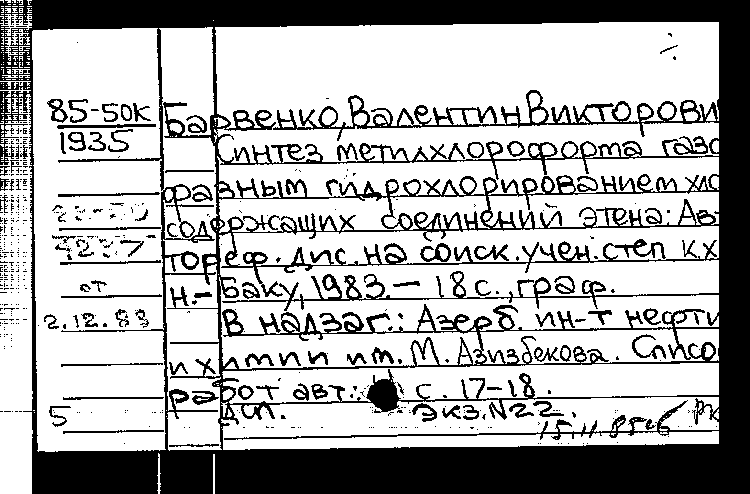 ÷
85-50к Барвенко, Валентин Викторови
1935 Синтез метилхлороформа газо
фазным гидрохлорированием хло
содержащих соединений этена: Ав
тореф. дис. на соиск. учен. степ к.х
н.- Баку, 1983. — 18 с., граф.
от
2.12.88 В надзаг.: Азерб. ин-т нефти
и химии им. М. Азизбекова. Список
работ авт.: с. 17-18.
5 Дсп. Экз. N22.
15.11.85